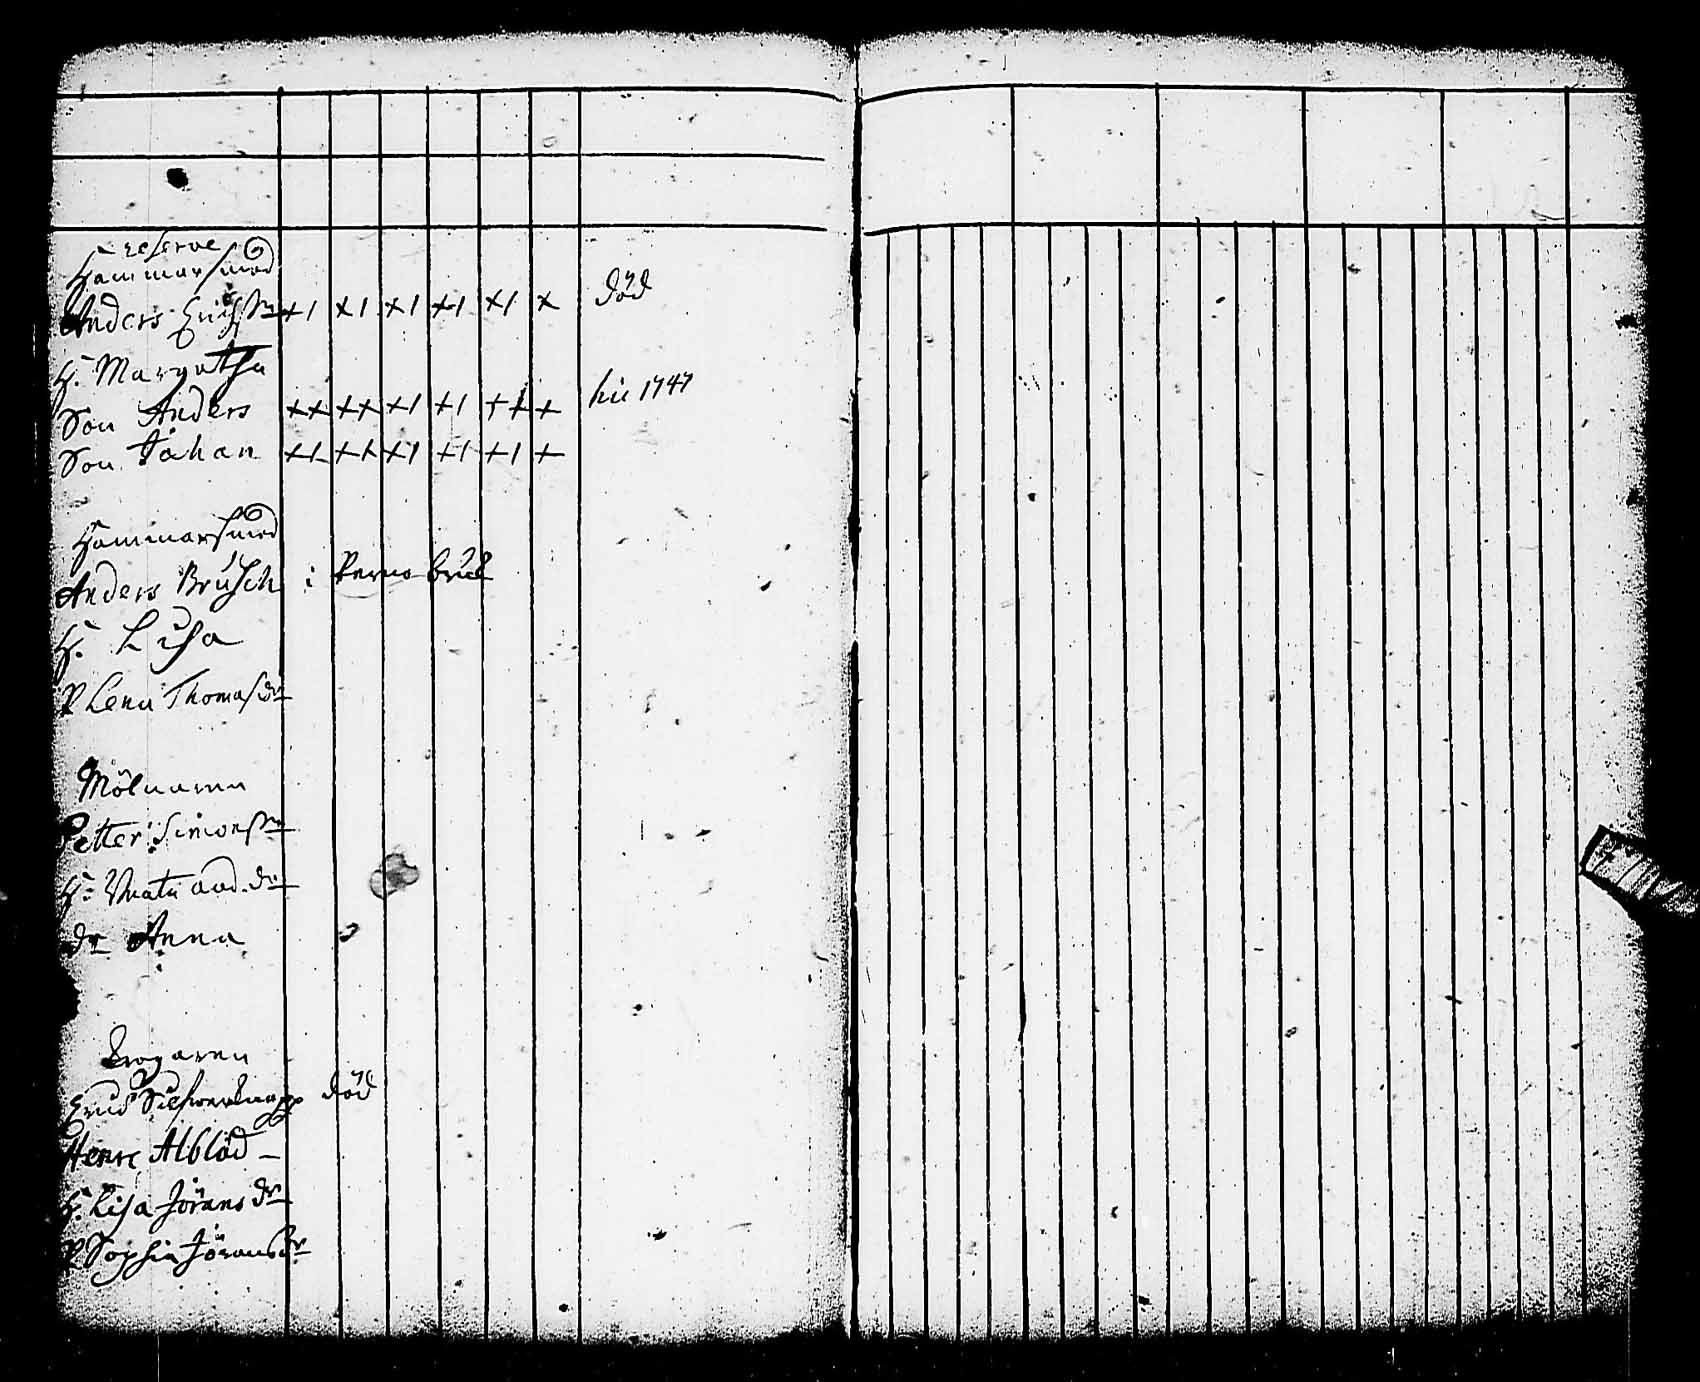 reserve
Hammarsmed
Anders Erichss. +1 ×1 ×1 ×1 ×1 × död
H. Margetha
Son Anders ×× ×× ×1 ×1 ++ + hic 1747
Son Johan ×1 ×× ×1 ×1 +1 +
Hammarsmed
Anders Brusch i bruk
H. Lisa
P Lena Thomasdr
Mölnaren
Petter Simonss.
H. and.dr
dr Anna
Krogaren
död
Henric
H. Lisa Jöransdr
P Sophia Jöransdr